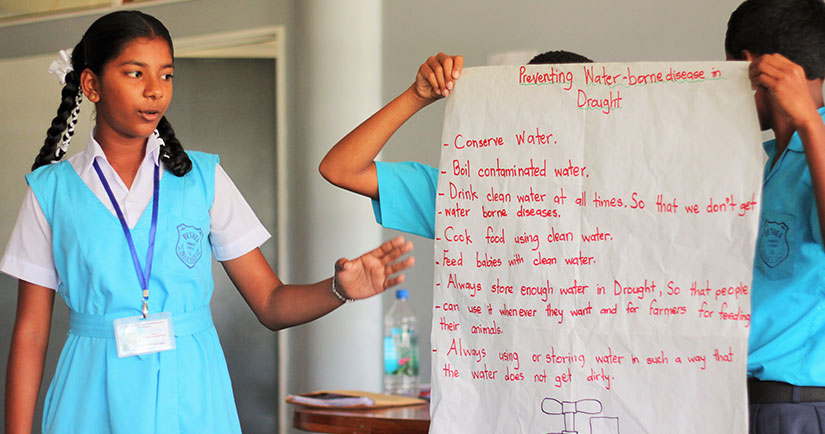 Preventing Water-borne disease in
Draught
- Conserve Water.
- Boil contaminated water.
- Drink clean water at all times. So that we don't get
- water borne diseases.
- Cook food using clean water.
- Feed babies with clean water.
- Always store enough water in Drought, So that people
- can use it whenever they want and for farmers for feeding
their animals.
- Always using or storing water in such a way that
the water does not get dirty.
BETHEL